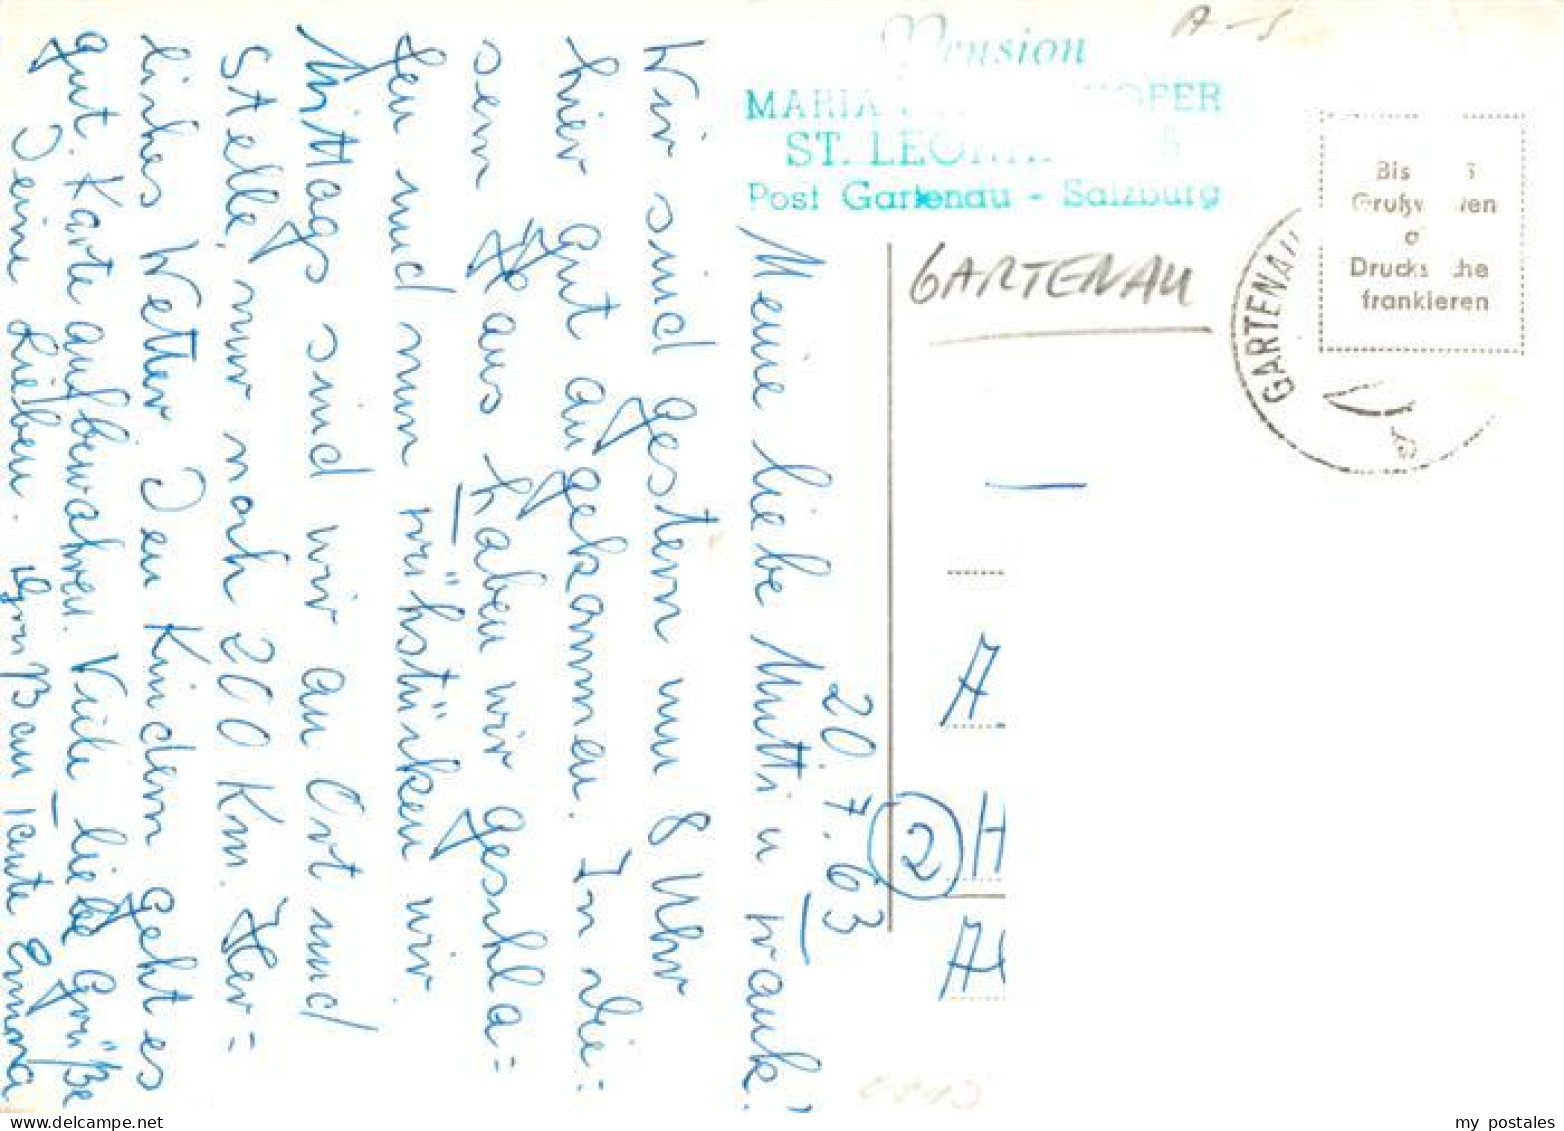 Pension
MARIA HOFER
ST. LEON
Post Gartenau - Salzburg
A-5
GARTENAU
GARTENAU
Bis
Druck
frankieren
20.7.63
Meine liebe Mutti u Frank!
Wir sind gestern um 8 Uhr
hier gut angekommen. In die=
sem Haus haben wir geschla=
fen und nun frühstücken wir.
Mittags sind wir an Ort und
Stelle, nur noch 200 Km. Herr=
liches Wetter Den Kindern geht es
gut. Karte aufbewahren. Viele liebe Grüße
Deine Lieben. Gruß an Tante Emma
A
2 H
A
my_postales